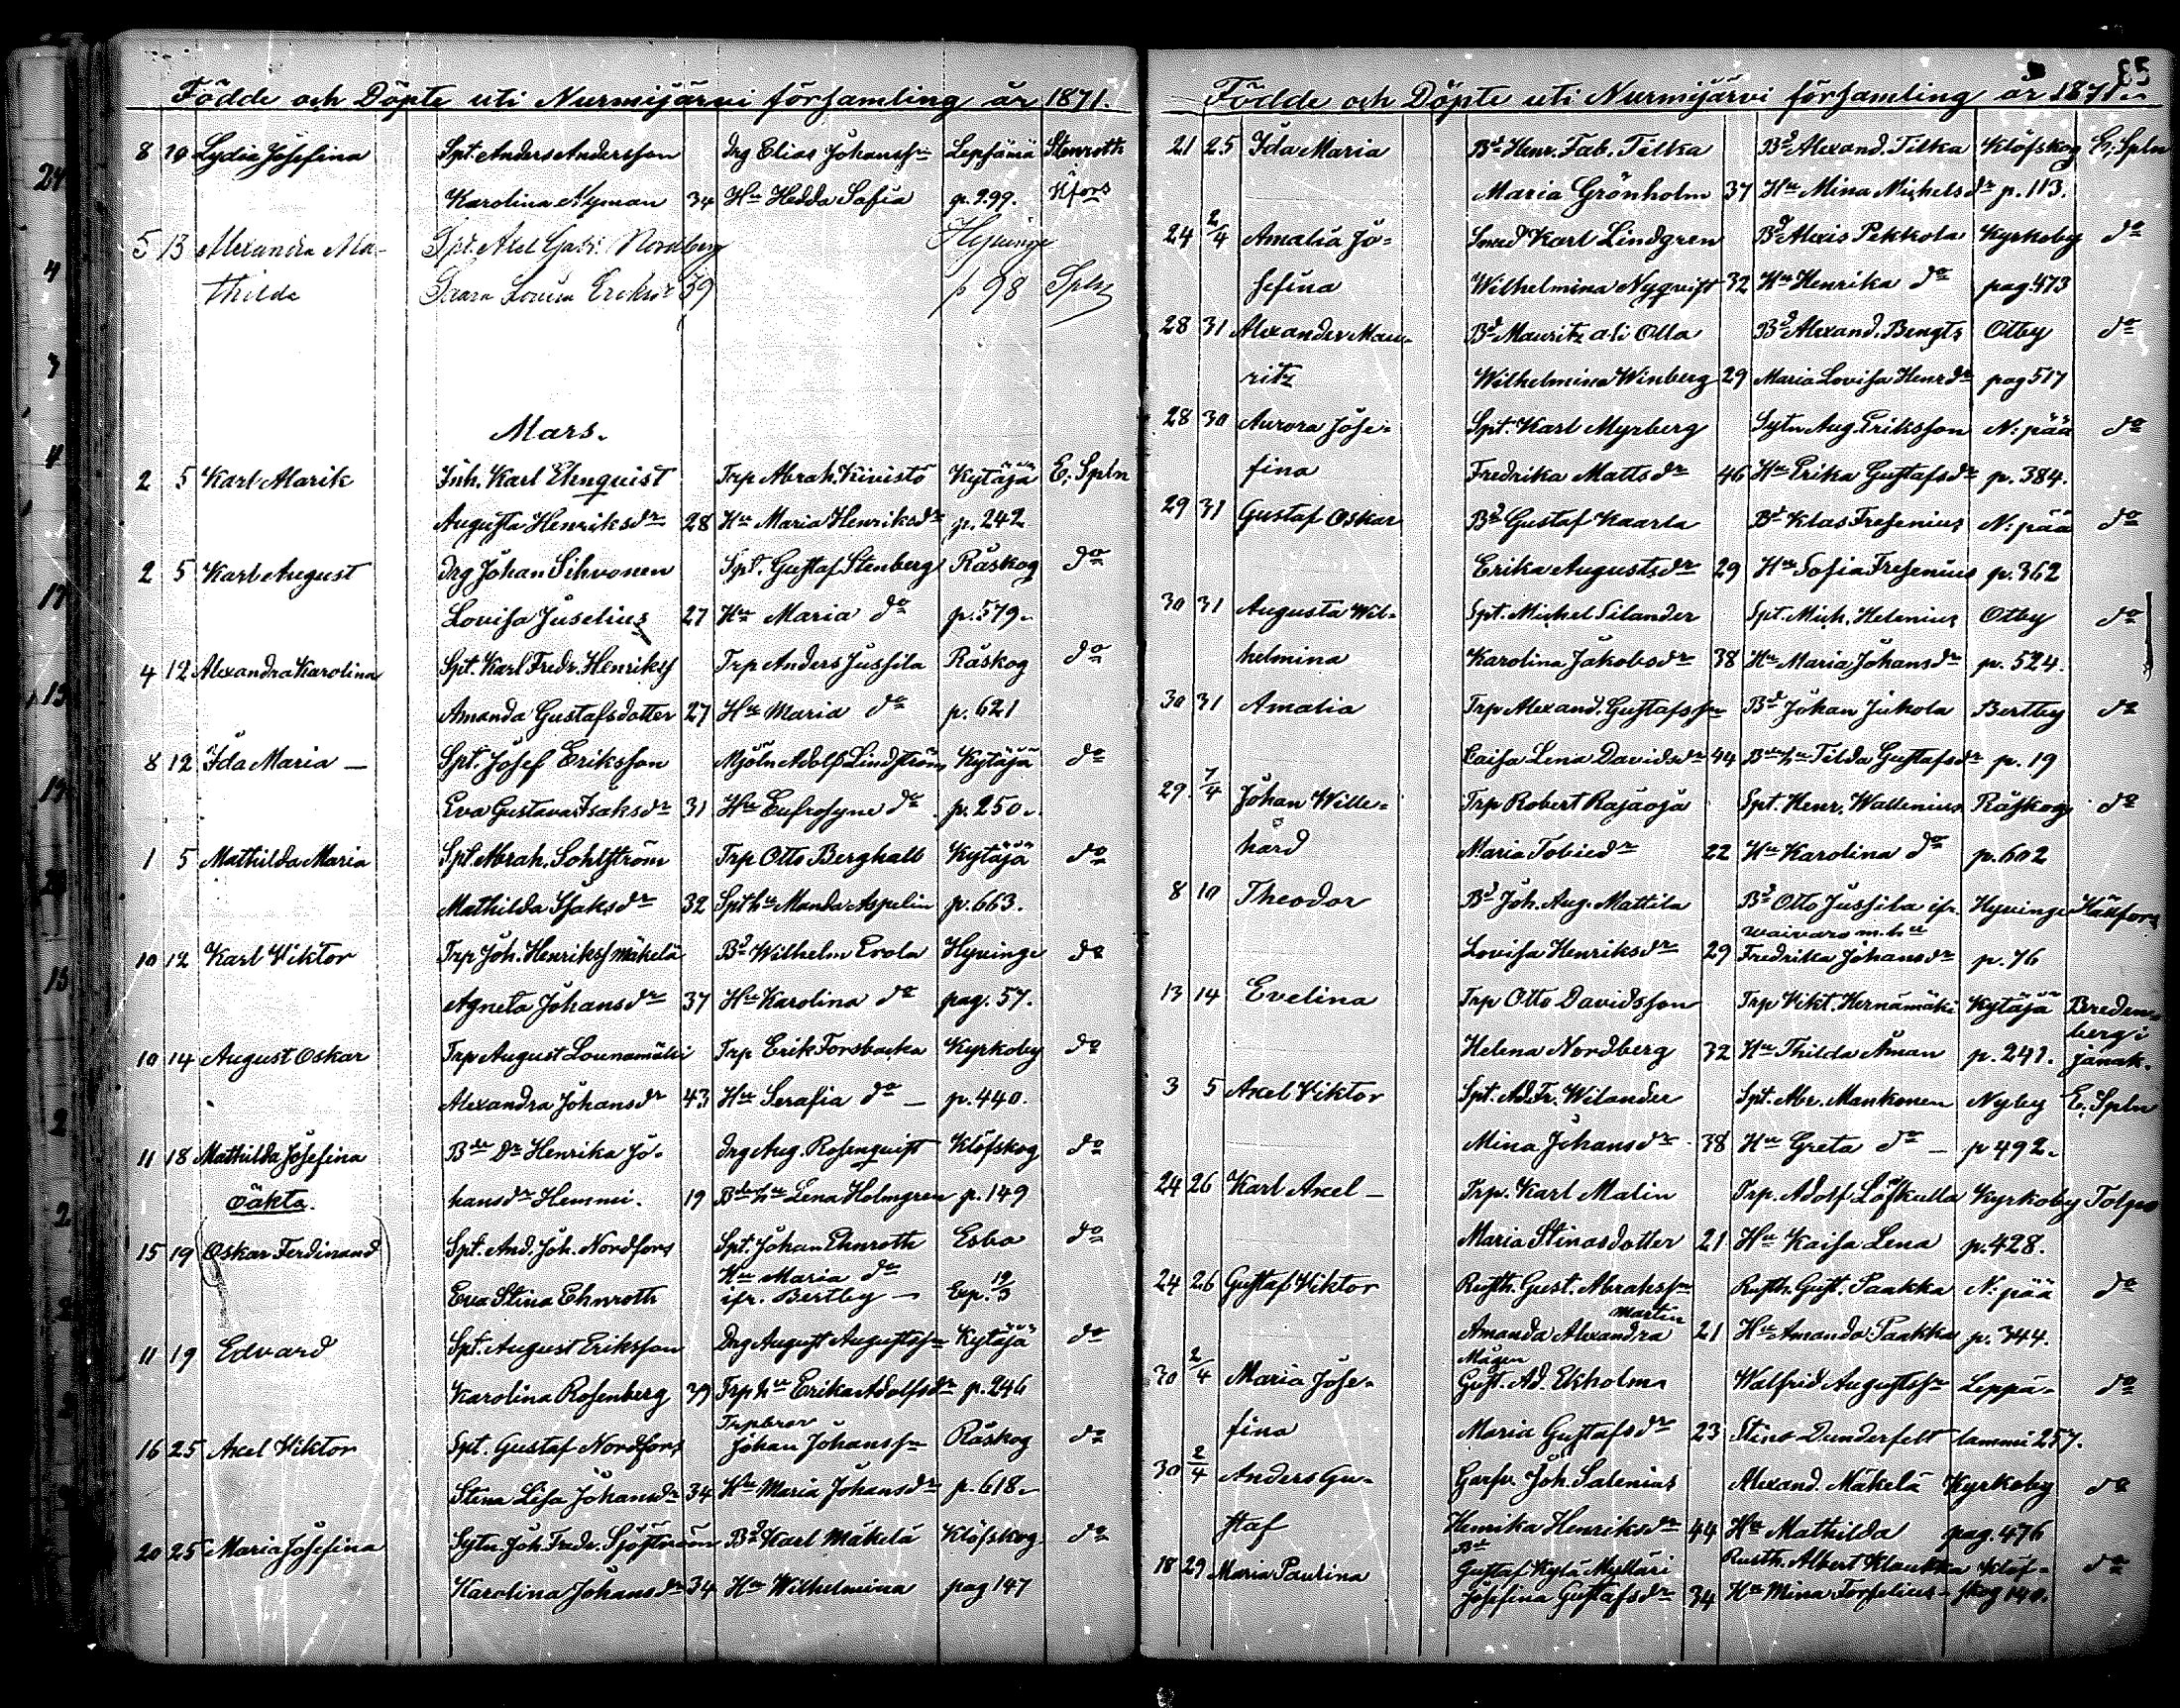 Födde och Döpte uti Nurmijärvi församling år 1871.
8 10 Lydia Josefina Spt. Anders Andersson Drg Elias Johanss:n Lepsämä Stenroth
Karolina Nyman 34 Hu Hedda Sofia p. 299. Hfors
5 13 Alexandra Ma- Spt. Axel Gabr. Nordberg Hyvinge
thilda Saara Lovisa Eriksdr 39 p 98 Spln
Mars.
2 5 Karl Alarik Inh. Karl Ehnquist Trp Abrah. Kivistö Kytäjä E. Spln
Augusta Henriksdr 28 Hu Maria Henriksdr p. 242
2 5 Karl August Drg Johan Sihvonen Spt. Gustaf Stenberg Råskog do
Lovisa Juselius 27 Hu Maria do p. 579.
4 12 Alexandra Karolina Spt. Karl Fredr. Henrikss Trp Anders Jussila Råskog do
Amanda Gustafsdotter 27 Hu Maria do p. 621
8 12 Ida Maria — Spt. Josef Eriksson Mjöln Adolf Lindström Kytäjä do
Eva Gustava Isaksdr 31 Hu Eufrosyne do p. 250.
1 5 Mathilda Maria Spt. Abrah. Sohlström Trp Otto Berghall Kytäjä do
Mathilda Isaksdr 32 Spt hu Manda Aspelin p. 663.
10 12 Karl Viktor Trp Joh. Henrikss Mäkelä Bd Wilhelm Erola Hyvinge do
Agneta Johansdr 37 Hu Karolina do pag. 57.
10 14 August Oskar Trp August Lounamäki Trp Erik Forsbacka Kyrkoby do
Alexandra Johansdr 43 Hu Serafia do — p. 440.
11 18 Mathilda Josefina Bde Dr Henrika Jo- Drg Aug. Rosenquist Klöfskog do
oäkta. hansdr Hemmi. 19 Bde hu Lena Holmgren p. 149
15 19 (Oskar Ferdinand) Spt. And. Joh. Nordfors Spt. Johan Ehnroth Esbo do
Hu Maria do
Eva Stina Ehnroth ifr. Bertby — Exp. 19/3
11 19 Edvard Spt. August Eriksson Drg August Augustss:n Kytäjä do
Karolina Rosenberg 39 Trp hu Erika Adolfsdr p. 246
Trpbror
16 25 Axel Viktor Spt. Gustaf Nordfors Johan Johanss:n Råskog do
Stina Lisa Johansdr 34 Hu Maria Johansdr p. 618.
20 25 Maria Josefina Sytn Joh. Fredr. Sjöström Bd Karl Mäkelä Klöfskog do
Karolina Johansdr 34 Hu Wilhelmina pag 147
85
Födde och Döpte uti Nurmijärvi församling år 1871.
21 25 Ida Maria Bd Henr. Fab. Tilka Bd Alexand. Tilka Klöfskog E. Spln
Maria Grönholm 37 Hu Mina Michelsdr p. 113.
24 2/4 Amalia Jo- Smed Karl Lindgren Bd Alexis Pekkola Kyrkoby do
sefina Wilhelmina Nyqvist 32 Hu Henrika do pag. 473
28 31 Alexander Mau- Bd Mauritz ali Olla Bd Alexand. Bengts Otby do
ritz Wilhelmina Winberg 29 Maria Lovisa Henrdr pag 517
28 30 Aurora Jose- Spt. Karl Myrberg Sytn Aug. Eriksson N:pää do
fina Fredrika Mattsdr 46 Hu Erika Gustafsdr p. 384.
29 31 Gustaf Oskar Bd Gustaf Kaarla Bd Klas Fresenius N:pää do
Erika Augustsdr 29 Hu Sofia Fresenius p. 362
30 31 Augusta Wil- Spt. Michel Silander Spt. Mich. Helenius Otby do
helmina Karolina Jakobsdr 38 Hu Maria Johansdr p. 524.
30 31 Amalia Trp Alexand. Gustafss:n Bd Johan Jukola Bertby do
Caisa Lena Davidsdr 44 Bde hu Tilda Gustafsdr p. 19
29. 7/4 Johan Wille- Trp Robert Rajaoja Spt. Henr. Wallenius Råskog do
hård Maria Tobiedr 22 Hu Karolina do p. 602
8 10 Theodor Bd Joh. Aug. Mattila Bd Otto Jussila ifr. Hyvinge Hällfors
waivaro m. hu
Lovisa Henriksdr 29 Fredrika Johansdr p. 76
13 14 Evelina Trp Otto Davidsson Trp Vikt. Hernämäki Kytäjä Bredenberg i
Helena Nordberg 32 Hu Thilda Åman p. 241. Janak.
3 5 Axel Viktor Spt. Ad. Fr. Wilander Spt. Abr. Mankonen Nyby E. Spln
Mina Johansdr 38 Hu Greta do — p 492.
24 26 Karl Axel — Trp. Karl Malin Trp. Adolf Löfkulla Kyrkoby Tolpo
Maria Stinasdotter 21 Hu Kaisa Lena p. 428.
24 26 Gustaf Viktor Rusth. Gust. Abrahss:n Rusth. Gust. Paakka N:pää do
Martin
Amanda Alexandra 21 Hu Amanda Paakka p. 344.
Mågen
30 2/4 Maria Jose- Gust. Ad. Ekholm Walfrid Augustss:n Leppä- do
fina Maria Gustafsdr 23 Stina Dunderfelt lammi 257.
30 2/4 Anders Gu- Garfv. Joh. Salenius Alexand. Mäkelä Kyrkoby do
staf Henrika Henriksdr 44 Hu Mathilda pag. 476
Bd
18 29 Maria Paulina Gustaf Kylä Mylläri Rusth. Albert Klaukka Klöf- do
Josefina Gustafsdr 34 Hu Mina Forselius — skog 140.